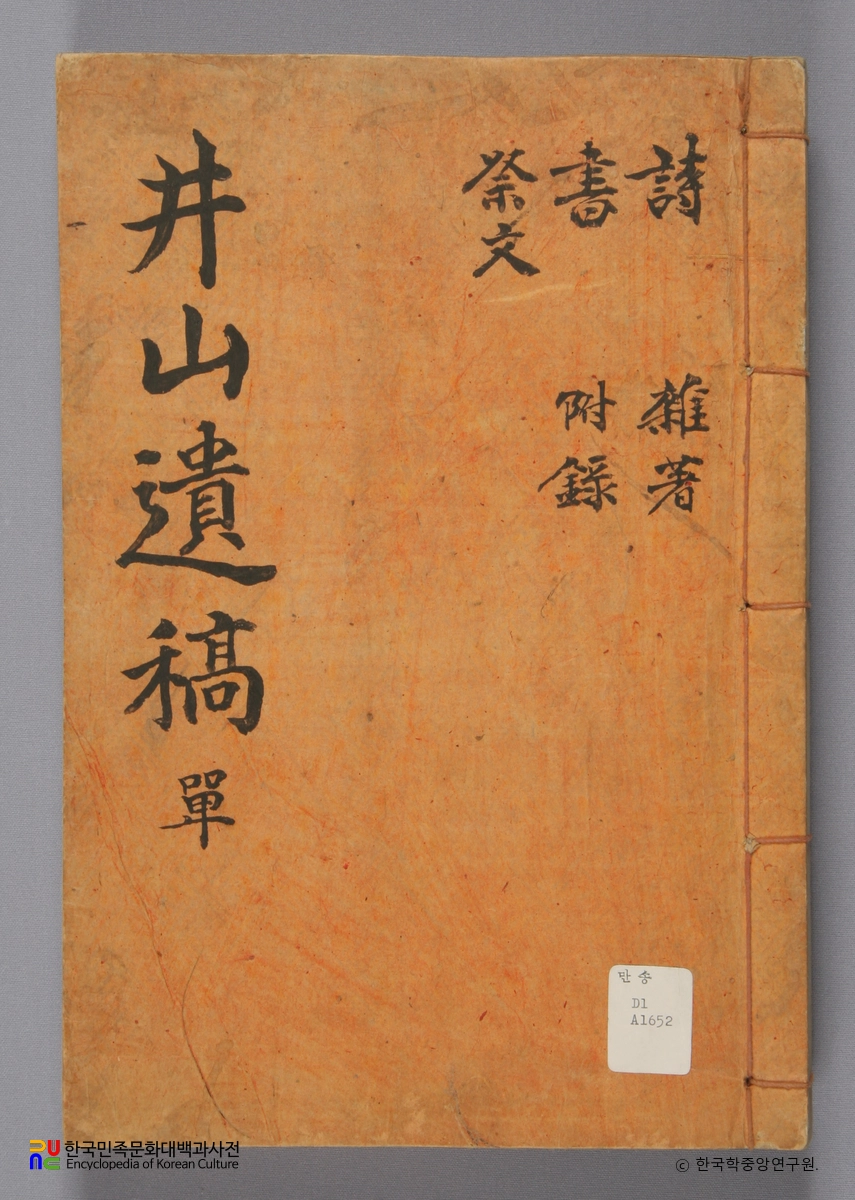 詩 雜著
書 附錄
祭文
井山遺稿 單
만송
D1
A1652
한국민족문화대백과사전
Encyclopedia of Korean Culture
© 한국학중앙연구원.